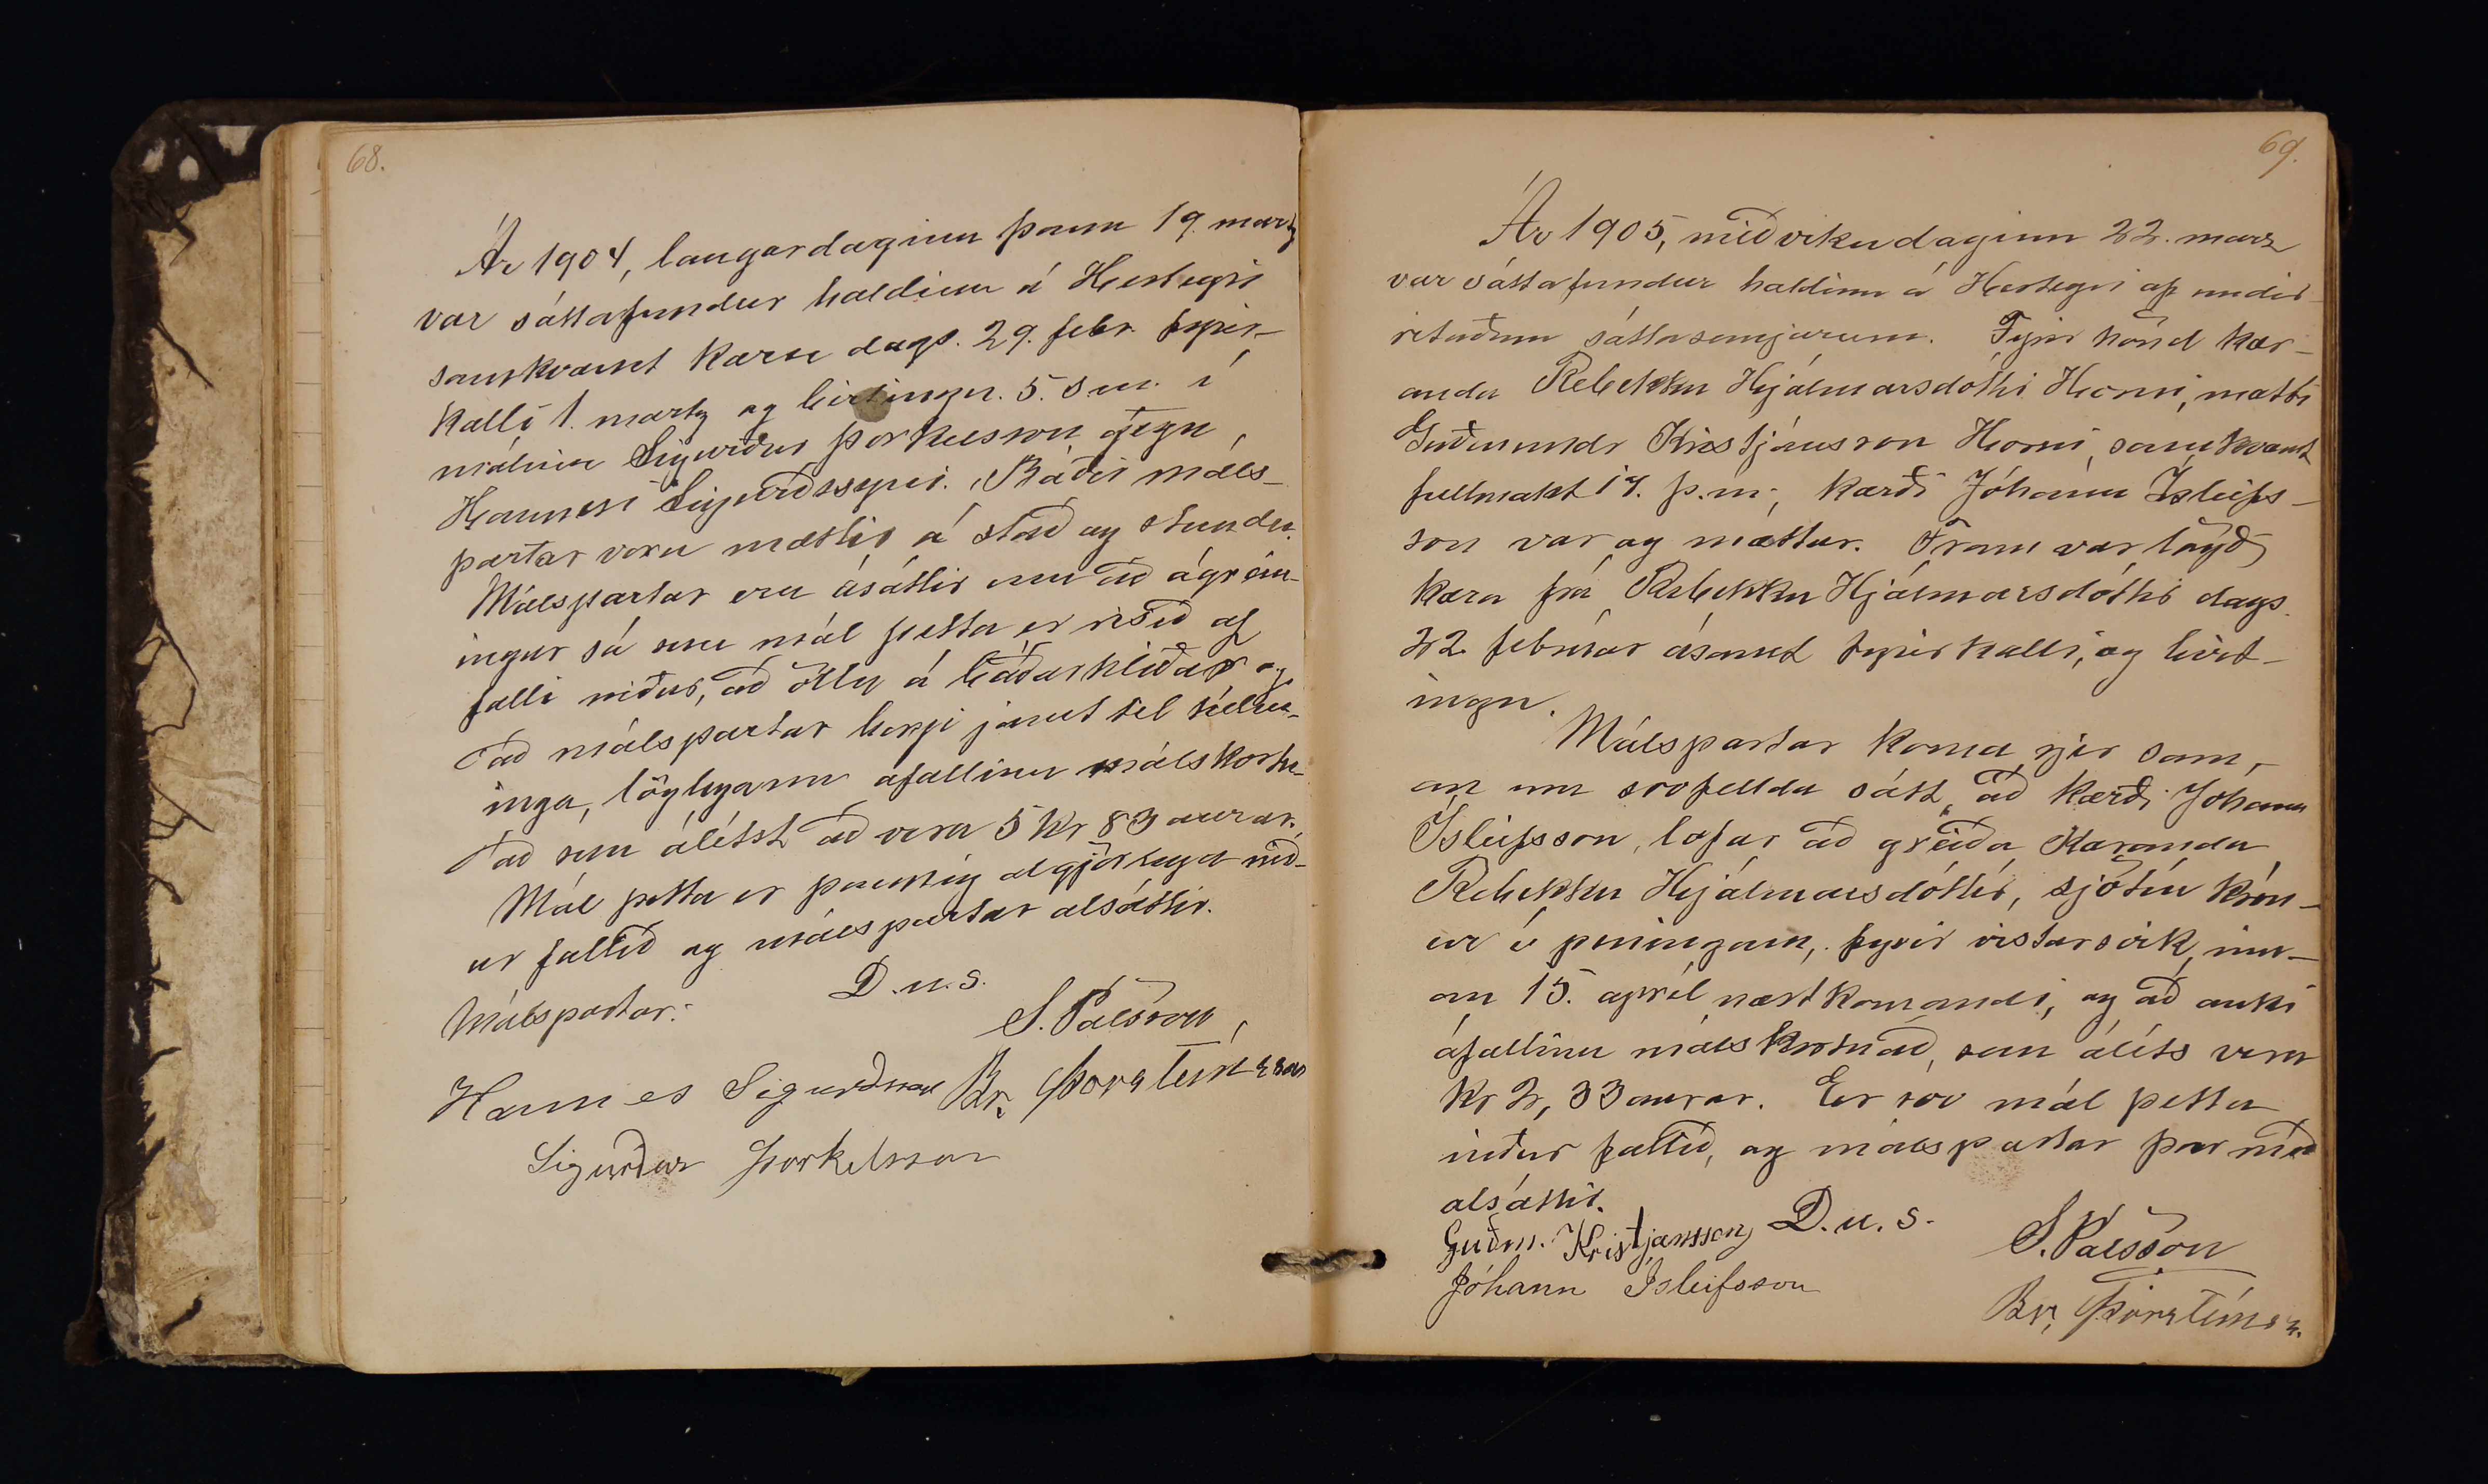 68.
Ár 1904, laugardaginn þann 19. martz
var sáttafundur haldinn á Hesteyri
samkvæmt kæru dags. 29. febr. fyrir-
kalli 1. martz og birtingu. 5. s. m. í
málinu Sigurður Þorkelsson gegn
Hannesi Sigurðssyni. Báðir máls-
partar voru mættir á stað og stundu.
Málspartar eru ásáttir um að ágrein-
ingur sá sem mál þetta er risið af
falli niður, að öllu á báðar hliðar og
að málspartar borgi jamt til helm-
inga, löglegann áfallinn málskostn-
að sem álítst að vera 5 kr 83 aurar.
Mál þetta er þannig algjörlega nið-
ur fallið og málspartar alsáttir.
D.u.s.
Málspartar:
S. Pálsson
Hannes Sigurðsson Br. Þorsteinsson
Sigurður Þorkelsson
69.
Ár 1905, miðvikudaginn 22. marz
var sáttafundur haldinn á Hesteyri af undir
rituðum sáttasemjurum. Fyrir hönd kær-
anda Rebekku Hjálmarsdóttir Horni, mætti
Guðmundr Kristjánsson Horni, samkvæmt
fullmakt 17. þ.m., kærði Jóhann Ísleifs-
son var og mættur. Fram var lögð
kæra frá Rebekku Hjálmarsdóttir dags.
22. febrúar ásamt fyrirkalli, og birt-
ingu.
Málspartar koma sjer sam-
an um svofellda sátt, að kærði Johann
Ísleifsson, lofar að greiða kæranda
Rebekku Hjálmarsdóttir, sjötíu krón-
ur í peningum, fyrir vistarsvik, inn-
an 15. apríl næstkomandi, og að auki
áfallinn málskostnað, sem álíts vera
kr 2, 33 aurar. Er svo mál þetta
niður fallið, og málspartar þar með
alsáttir.
D. u. s.
Guðm. Kristjánsson
S. Pálsson
Jóhann Ísleifsson
Br. Þorsteinsn.